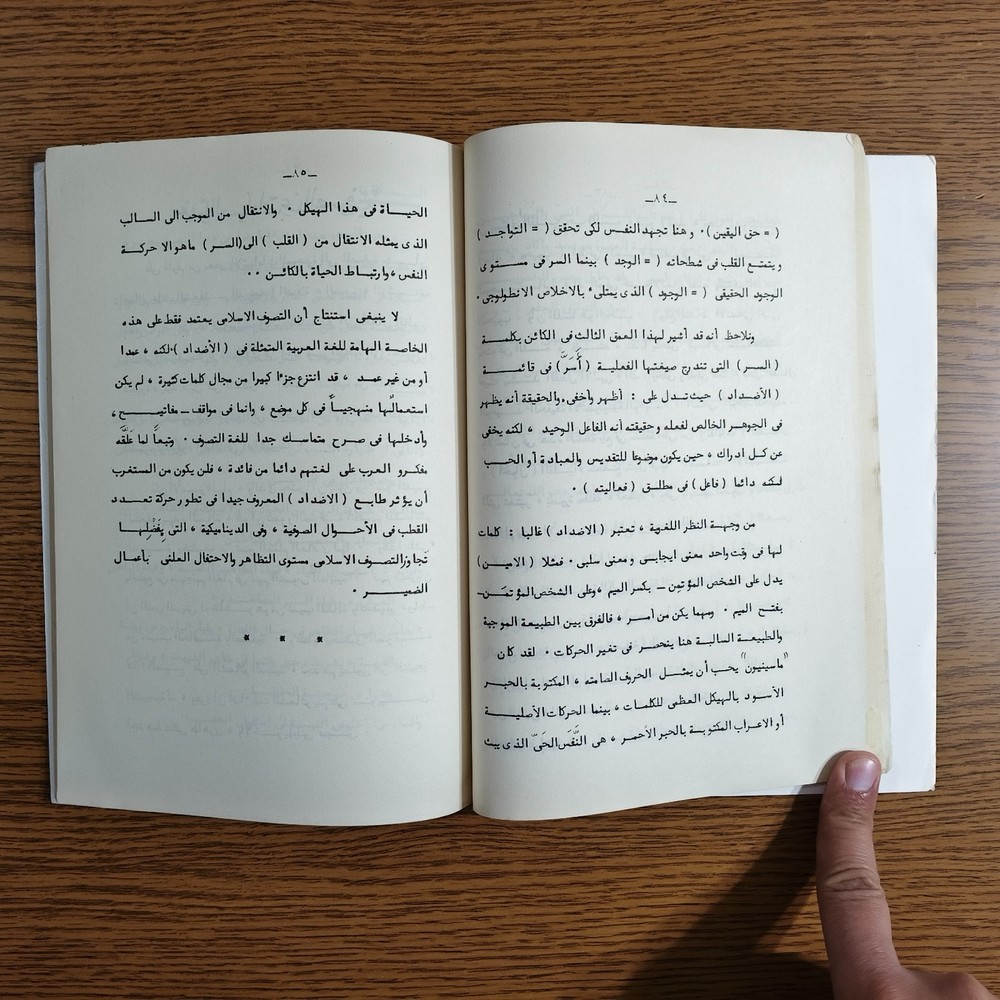 ـ٨٤ـ
( = حق اليقين ) ٠ وهنا تجهد النفس لكى تحقق ( = التواجد )
ويتمتع القلب فى شطحاته ( = الوجد ) بينما السر فى مستوى
الوجود الحقيقى ( = الوجود ) الذى يمتلىء بالاخلاص الانطولوجى ٠
ونلاحظ أنه قد أشير لهذا العمق الثالث فى الكائن بكلمة
( السر ) التى تندرج صيغتها الفعلية ( أَسَرَّ ) فى قائمة
( الأضداد ) حيث تدل على : أظهر وأخفى، والحقيقة أنه يظهر
فى الجوهر الخالص لفعله وحقيقته أنه الفاعل الوحيد ، لكنه يخفى
عن كل ادراك ، حين يكون موضوعا للتقديس والعبادة أو الحب
لكنه دائما ( فاعل ) فى مطلق ( فعاليته ) ٠
من وجهة النظر اللغوية ، تعتبر ( الاضداد ) غالبا : كلمات
لها فى وقت واحد معنى ايجابى ومعنى سلبى ٠ فمثلا ( الامين )
يدل على الشخص المؤتمِن ــ بكسر الميم ، وعلى الشخص المؤتمَن ــ
بفتح الميم ٠ ومهما يكن من أمر ، فالفرق بين الطبيعة الموجبة
والطبيعة السالبة هنا ينحصر فى تغير الحركات ٠ لقد كان
"ماسينيون" يحب أن يمثل الحروف الصامته ، المكتوبة بالحبر
الأسود بالهيكل العظمى للكلمات ، بينما الحركات الأصلية
أو الاعراب المكتوبة بالحبر الأحمر ، هى النَّفَس الحَىّ الذى يبث
ـ٨٥ـ
الحياة فى هذا الهيكل ٠ والانتقال من الموجب الى السالب
الذى يمثله الانتقال من ( القلب ) الى (السر) ماهو الا حركة
النفس، وارتباط الحياة بالكائن ٠٠
لا ينبغى استنتاج أن التصوف الاسلامى يعتمد فقط على هذه
الخاصة الهامة للغة العربية المتمثلة فى ( الأضداد ) ٠ لكنه ، عمدا
أو من غير عمد ، قد انتزع جزءا كبيرا من مجال كلمات كثيرة ، لم يكن
استعمالها منهجياً فى كل موضع ، وانما فى مواقف ــ مفاتيح ،
وأدخلها فى صرح متماسك جدا للغة التصوف ٠ وتبعاً لما عَلَّقه
مفكرو العرب على لغتهم دائما من فائدة ، فلن يكون من المستغرب
أن يؤثر طابع ( الاضداد ) المعروف جيدا فى تطور حركة تعدد
القطب فى الأحوال الصوفية ، وفى الديناميكية ، التى بِفَضْلِها
تجاوز التصوف الاسلامى مستوى التظاهر والاحتفال العلنى بأعمال
الضمير ٠
* * *